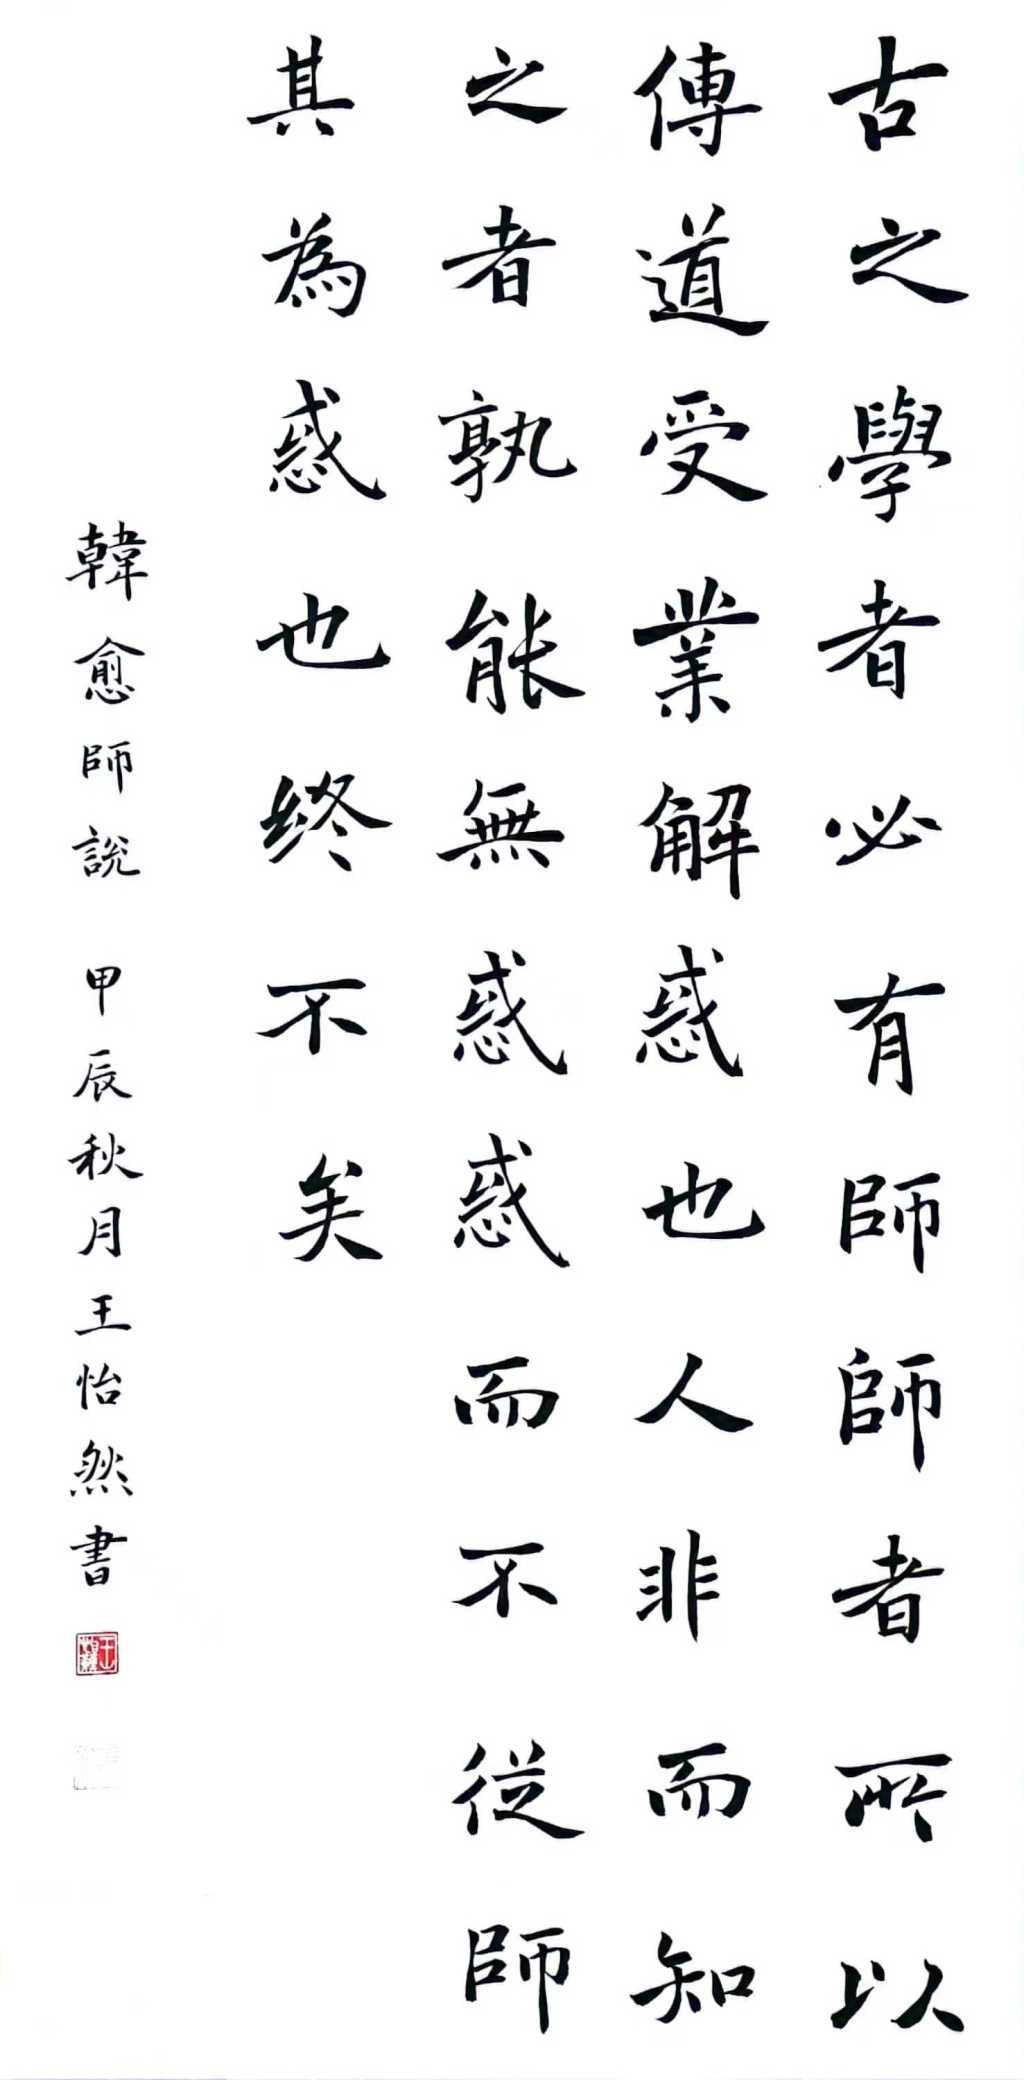 古之學者必有師師者所以
傳道受業解惑也人非而知
之者孰能無惑惑而不從師
其為惑也终不矣
韓愈師說 甲辰秋月王怡然書